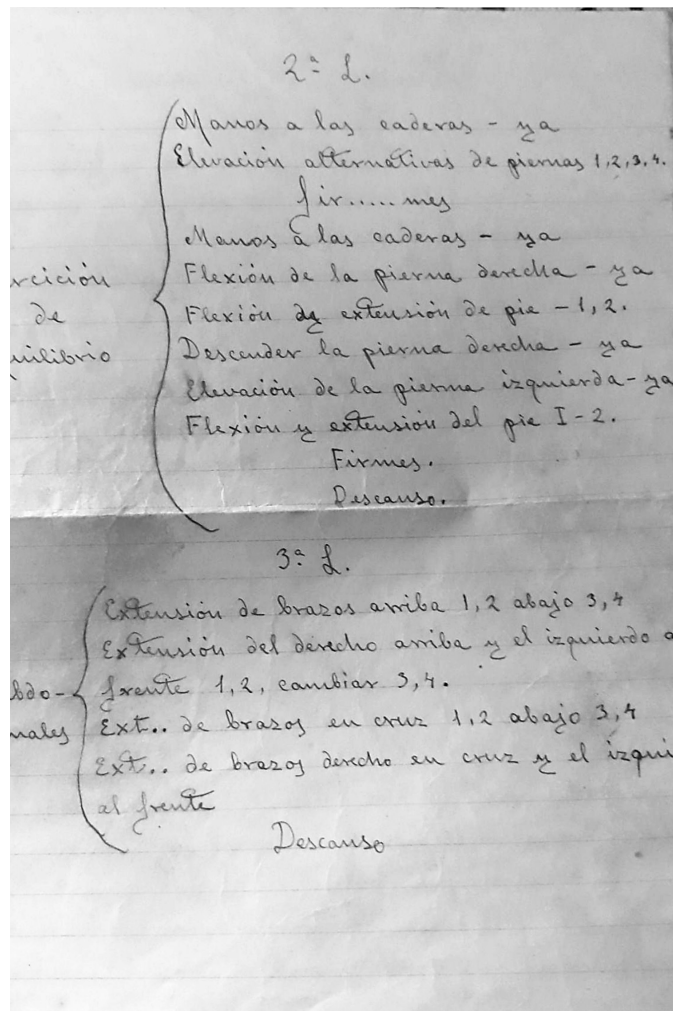 2ª L.
Manos a las caderas - ya
Elevación alternativas de piernas 1,2,3,4.
fir.....mes
Manos a las caderas - ya
rcición
Flexión de la pierna derecha - ya
de
Flexión y extensión de pie - 1,2.
uilibrio
Descender la pierna derecha - ya
Elevación de la pierna izquierda - ya
Flexión y extensión del pie I-2.
Firmes.
Descanso.
3ª L.
Extensión de brazos arriba 1,2 abajo 3,4
Extensión del derecho arriba y el izquierdo a
bdo-
frente 1,2, cambiar 3,4.
nales
Ext.. de brazos en cruz 1,2 abajo 3,4
Ext.. de brazos derecho en cruz y el izqui
al frente
Descanso